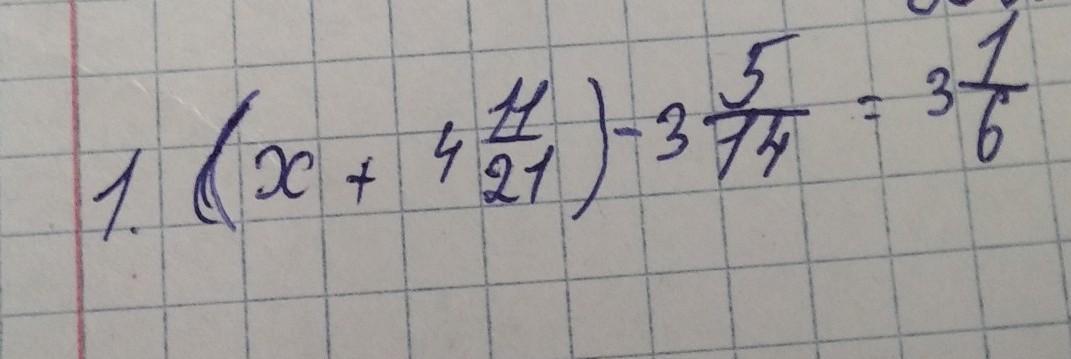 1. (x + 4 11/21) - 3 5/14 = 3 1/6